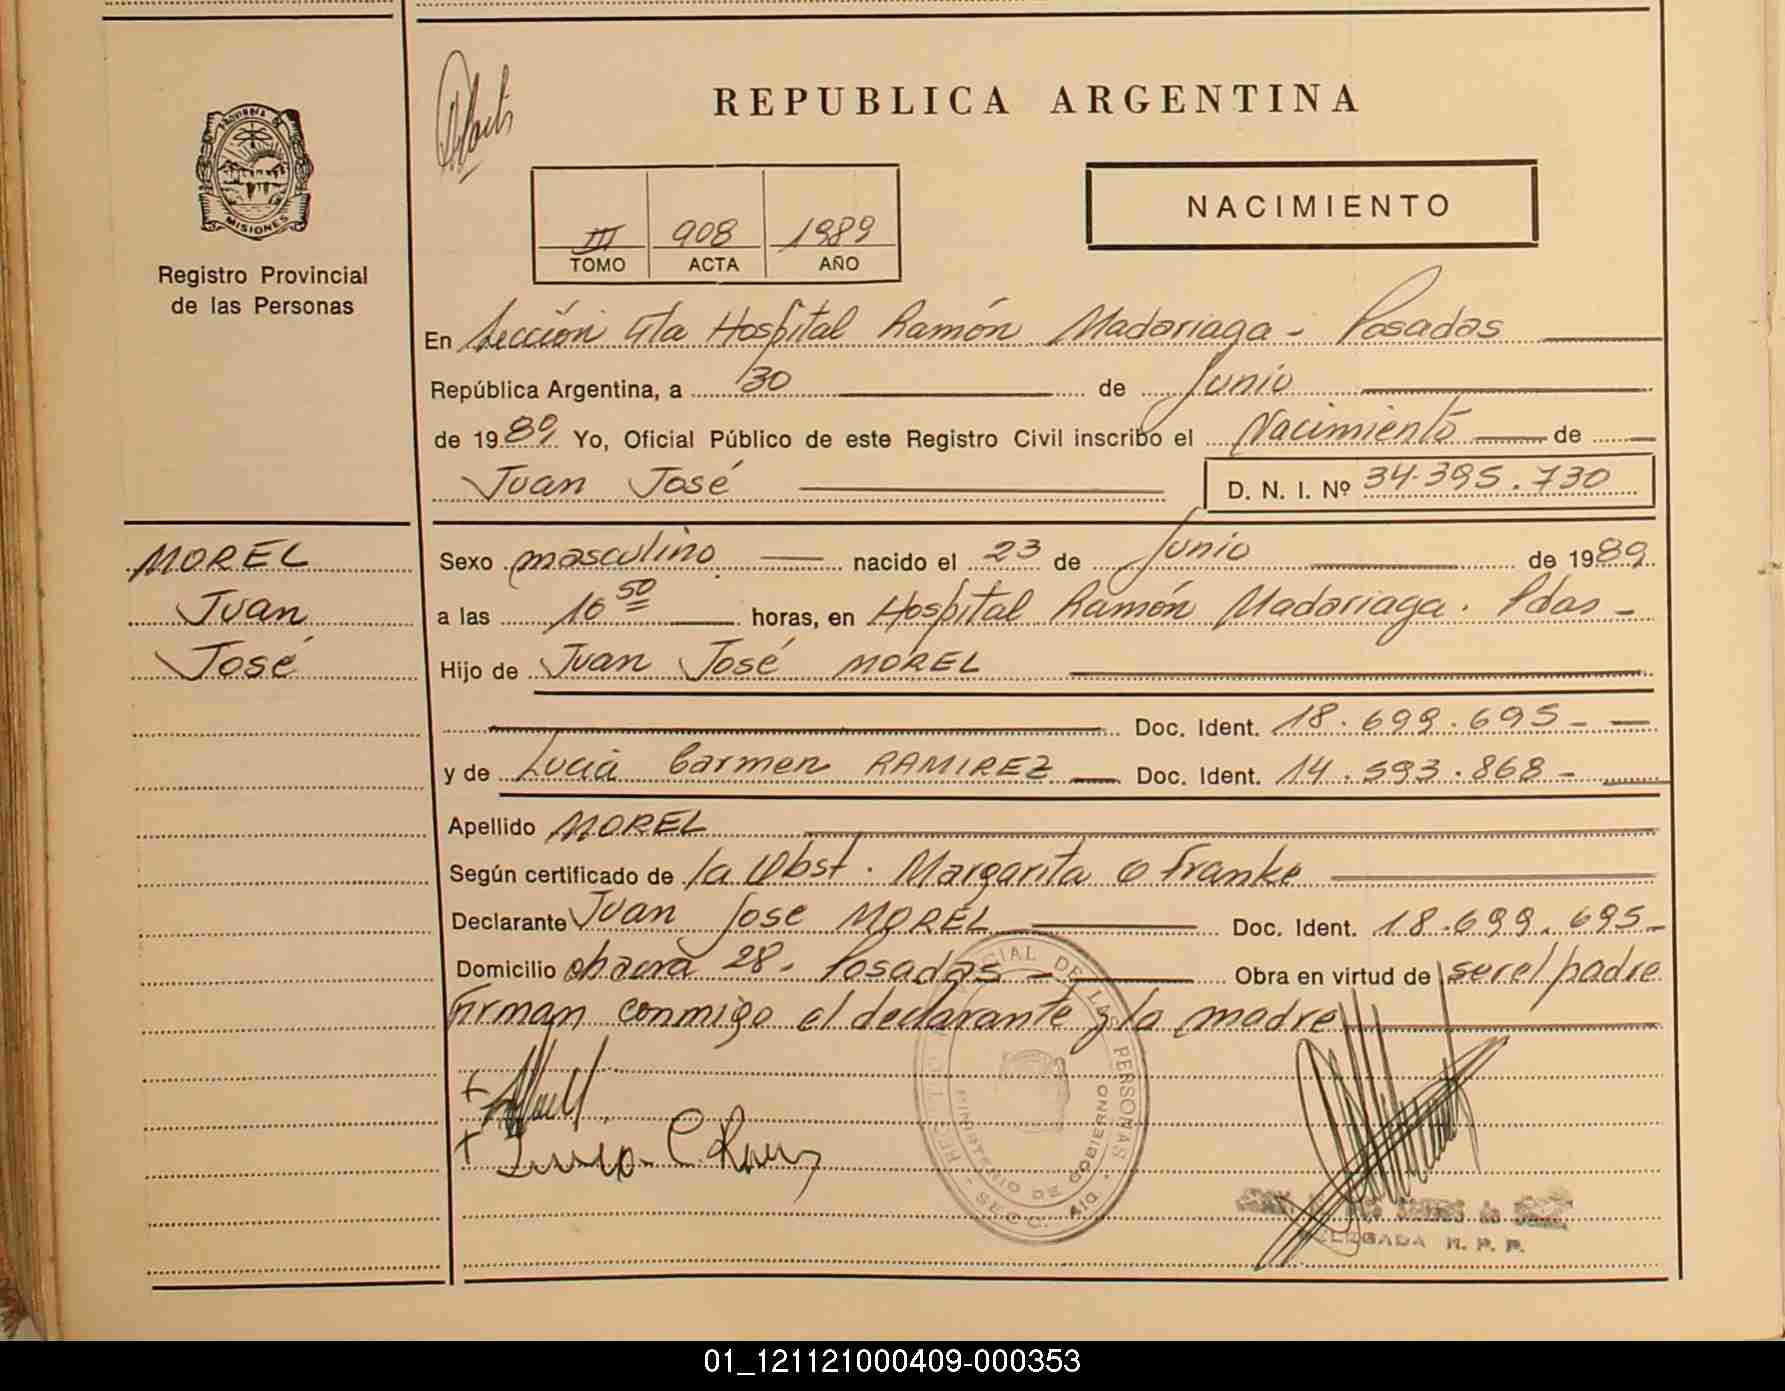 REPUBLICA ARGENTINA
PROVINCIA DE
MISIONES
Registro Provincial
de las Personas
III 908 1989
TOMO ACTA AÑO
NACIMIENTO
En Sección 4ta Hospital Ramón Madariaga - Posadas
República Argentina, a 30 de Junio
de 1989 Yo, Oficial Público de este Registro Civil inscribo el Nacimiento de
Juan José D. N. I. Nº 34.395.730
MOREL
Juan
José
Sexo masculino nacido el 23 de Junio de 1989
a las 10 50 horas, en Hospital Ramón Madariaga. Pdas -
Hijo de Juan José MOREL
Doc. Ident. 18.699.695 -
y de Lucia Carmen RAMIREZ Doc. Ident. 14.593.868 -
Apellido MOREL
Según certificado de la Obst. Margarita O Franke
Declarante Juan Jose MOREL Doc. Ident. 18.699.695 -
Domicilio chacra 28 - Posadas - Obra en virtud de ser el padre
Firman conmigo el declarante y la madre
DE LAS PERSONAS
MINISTERIO DE GOBIERNO
SECC.
DELEGADA R. P. P.
01_121121000409-000353